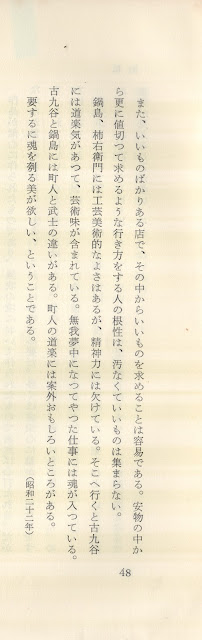 また、いいものばかりある店で、その中からいいものを求めることは容易である。安物の中か
ら更に値切つて求めるような行き方をする人の根性は、汚なくていいものは集まらない。
鍋島、柿右衛門には工芸美術的なよさはあるが、精神力には欠けている。そこへ行くと古九谷
には道楽気があつて、芸術味が含まれている。無我夢中になつてやつた仕事には魂が入つている。
古九谷と鍋島には町人と武士の違いがある。町人の道楽には案外おもしろいところがある。
要するに魂を剜る美が欲しい、ということである。
(昭和二十二年)
48